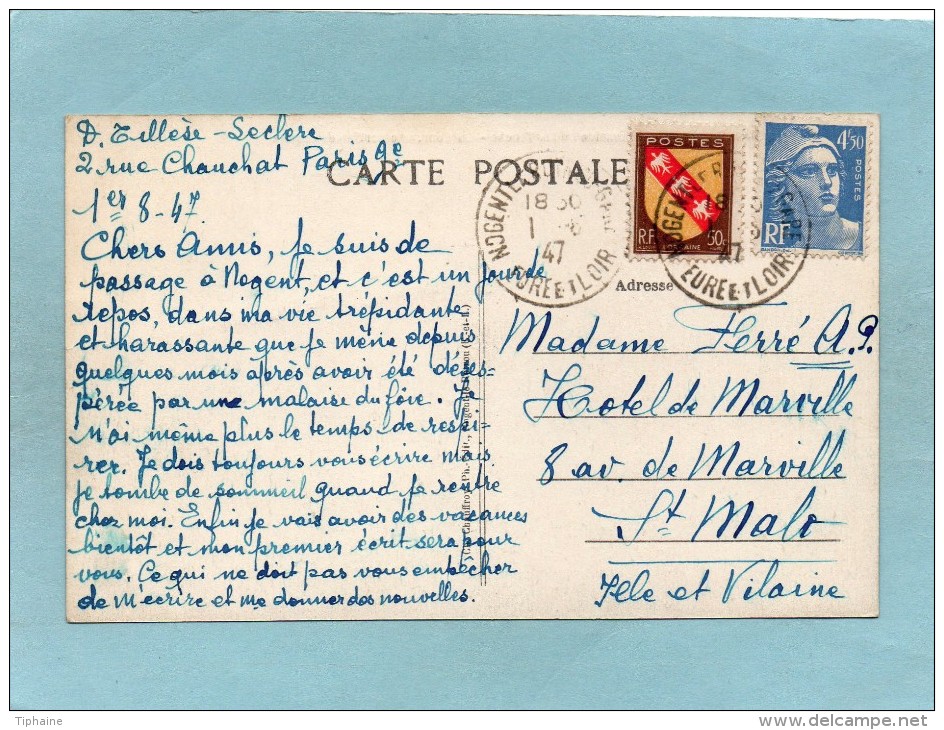 D. Tillèse-Leclere
2 rue Chauchat Paris 9e
1er 8-47
Chers Amis, je suis de
passage à Nogent, et c'est un jour de
repos, dans ma vie trépidante
et harassante que je mène depuis
quelques mois après avoir été déses-
pérée par une malaise du foie. Je
n'ai même plus le temps de respi-
rer. Je dois toujours vous écrire mais
je tombe de sommeil quand je rentre
chez moi. Enfin je vais avoir des vacances
bientôt et mon premier écrit sera pour
vous. Ce qui ne doit pas vous empêcher
de m'écrire et me donner des nouvelles.
CARTE POSTALE
POSTES
R.F.
LORRAINE
50c
4f50
POSTES
RF
NOGENT
18 30
1 8
47
EURE ET LOIR
NOGENT
47
EURE ET LOIR
Adresse
Madame Ferré A.P.
Hotel de Marville
8 av. de Marville
St Malo
Ille et Vilaine
Tiphaine
www.delcampe.net